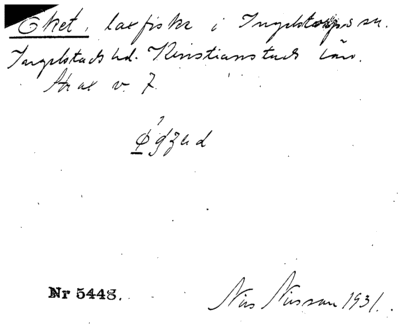 Eket, laxfiske i Ingelstorps sn.
Ingelstads hd. Kristianstads län.
Ak ae v. 7
Nr 5448.
Nils Nilsson 1931.